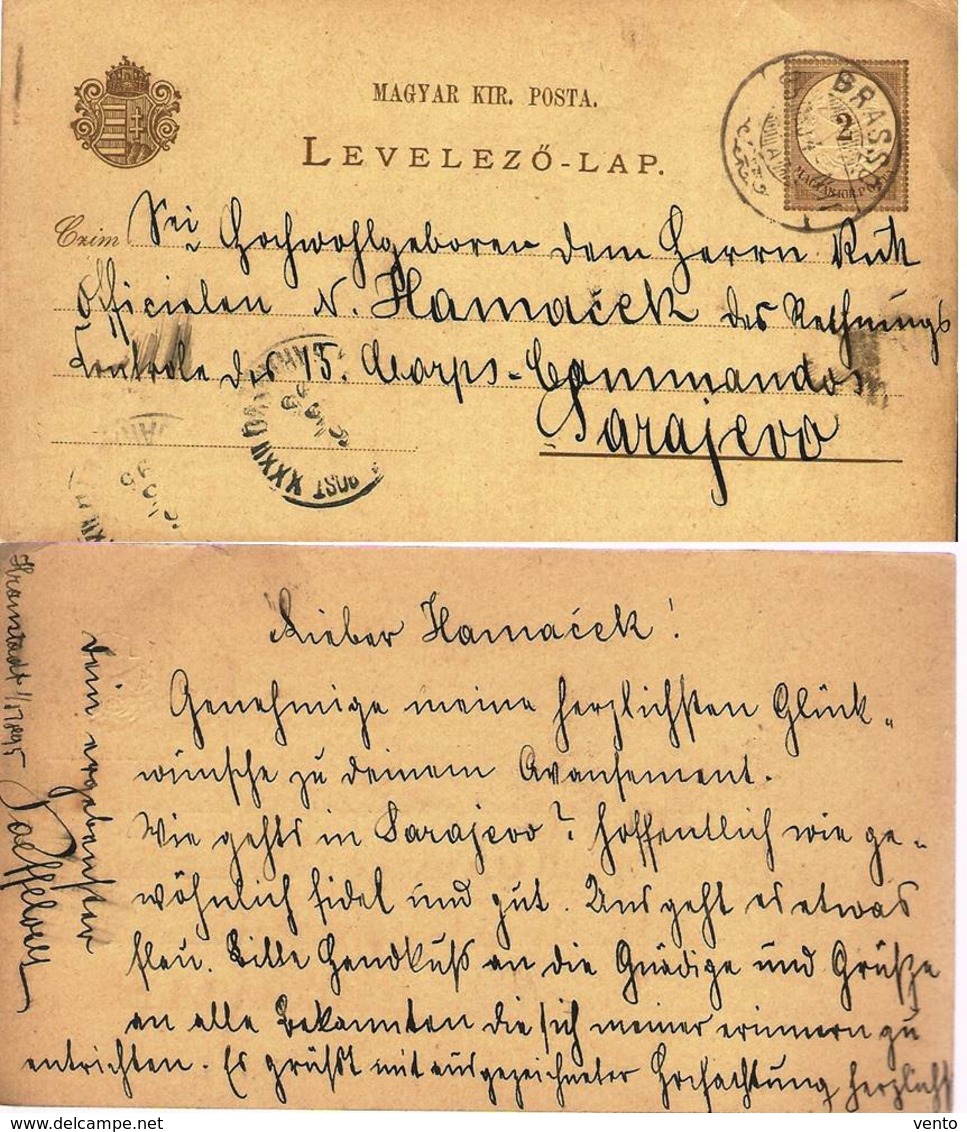 MAGYAR KIR. POSTA.
LEVELEZŐ-LAP.
BRASSÓ
2
MAGYAR KIR. POSTA
Czim Sei Hochwohlgeboren dem Herrn
Officialen N. Hamaček des Rechnungs
Controle des 15. Corps-Commandos
Sarajevo
POST XXXXII
Lieber Hamaček!
Genehmige meine herzlichsten Glück-
wünsche zu deinem Avansement.
Wie gehts in Sarajevo? Hoffentlich wie ge-
wöhnlich fidel und gut. Uns geht es etwas
flau. Bitte Handkuß an die Gnädige und Grüße
an alle Bekannten die sich meiner erinnern zu
entrichten. Es grüßt mit ausgezeichneter Hochachtung herzlichst
dein ergebenster
Kronstadt 1/5 1895
vento